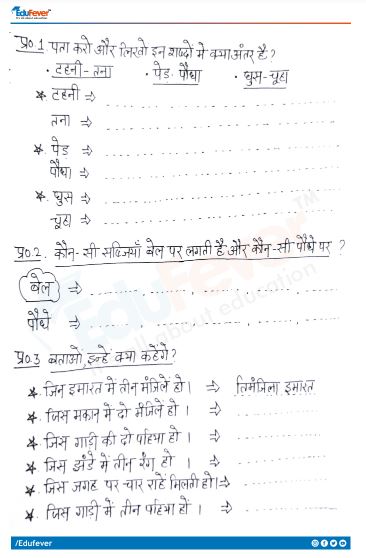 EduFever
प्र०.1 पता करो और लिखो इन शब्दों में क्या अंतर है?
• टहनी - तना • पेड़ - पौधा • घुस - चूहा
* टहनी ⇒
तना ⇒
* पेड़ ⇒
पौधा ⇒
* घुस ⇒
चूहा ⇒
प्र०.2. कौन-सी सब्जियाँ बेल पर लगती है और कौन-सी पौधे पर ?
बेल ⇒
पौधे ⇒
प्र०.3 बताओ, इन्हें क्या कहेंगे?
* जिन इमारत में तीन मंजिलें हो । ⇒ तिमंजिला इमारत
* जिस मकान में दो मंजिलें हो । ⇒
* जिस गाड़ी की दो पहिया हो । ⇒
* जिस झंडे में तीन रंग हो । ⇒
* जिस जगह पर चार राहें मिलती हो। ⇒
* जिस गाड़ी में तीन पहिया हो । ⇒
EduFever TM
all about education
/Edufever